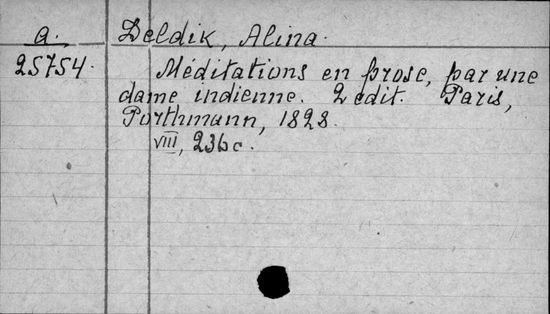 a. Deldik, Alina.
25754. Méditations en prose, par une
dame indienne. 2 edit. Paris,
Porthmann, 1828.
VIII, 236 c.